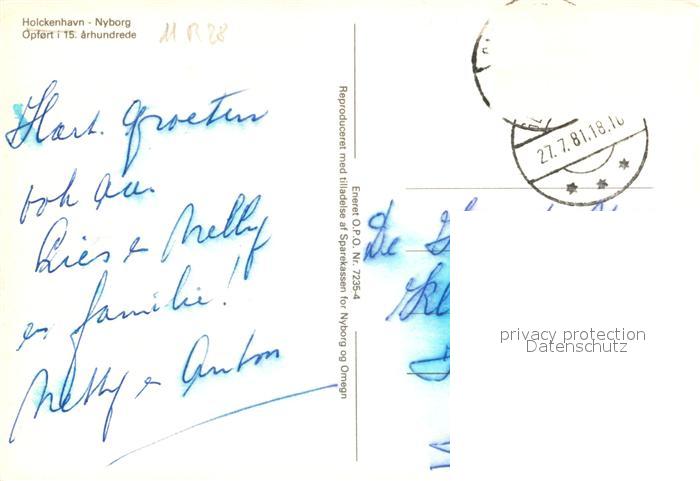 Holckenhavn - Nyborg
Opført i 15. århundrede
11 R 28
Hart. groeten
ook aa.
Lies & Nelly
en familie!
Nelly & Anton
Reproduceret med tilladelse af Sparekassen for Nyborg og Omegn
Eneret O.P.O. Nr. 7235-4
27.7.81.18.10
De
privacy protection
Datenschutz